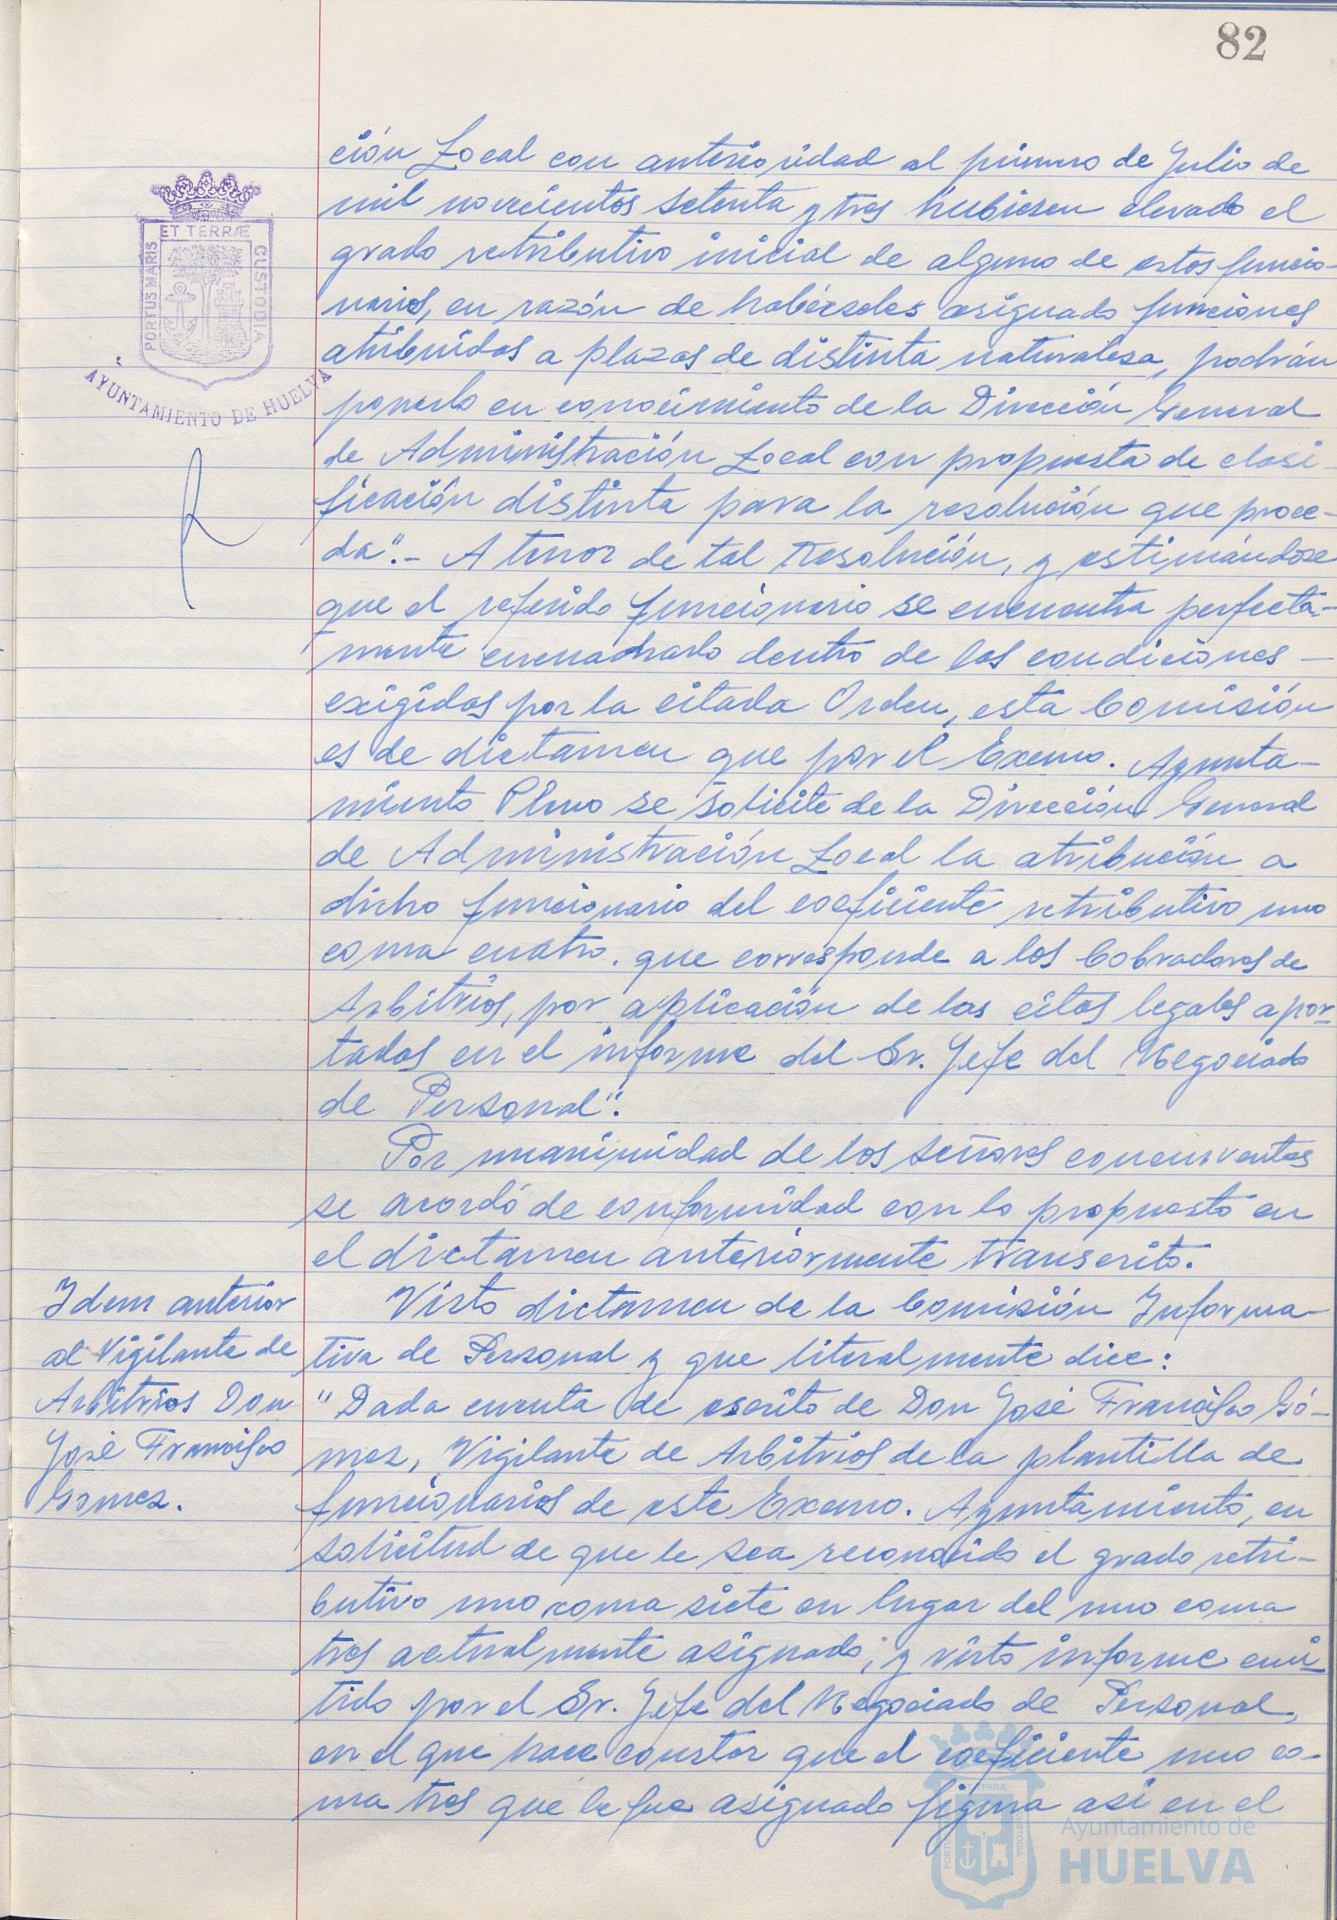 82
ción Local con anterioridad al primero de Julio de
mil novecientos setenta y tres hubiesen elevado el
grado retributivo inicial de alguno de estos funcio-
narios, en razón de habérseles asignado funciones
atribuidas a plazas de distinta naturaleza, podrán
ponerlo en conocimiento de la Dirección General
de Administración Local con propuesta de clasi-
ficación distinta para la resolución que proce-
da".- A tenor de tal Resolución, y estimándose
que el referido funcionario se encuentra perfecta-
mente encuadrado dentro de las condiciones -
exigidas por la citada Orden, esta Comisión
es de dictamen que por el Excmo. Ayunta-
miento Pleno se solicite de la Dirección General
de Administración Local la atribución a
dicho funcionario del coeficiente retributivo uno
coma cuatro. que corresponde a los Cobradores de
Arbitrios, por aplicación de las citas legales apor-
tadas en el informe del Sr. Jefe del Negociado
de Personal".
Por unanimidad de los señores concurrentes
se acordó de conformidad con lo propuesto en
el dictamen anteriormente transcrito.
Idem anterior
al Vigilante de
Arbitrios Don
José Francisco
Gómez.
Visto dictamen de la Comisión Informa-
tiva de Personal y que literalmente dice:
"Dada cuenta de escrito de Don José Francisco Gó-
mez, Vigilante de Arbitrios de la plantilla de
funcionarios de este Excmo. Ayuntamiento, en
solicitud de que le sea reconocido el grado retri-
butivo uno coma siete en lugar del uno coma
tres actualmente asignado; y visto informe emi-
tido por el Sr. Jefe del Negociado de Personal,
en el que hace constar que el coeficiente uno co-
ma tres que le fue asignado figura así en el
PORTUS MARIS ET TERRÆ CUSTODIA
AYUNTAMIENTO DE HUELVA
Ayuntamiento de
HUELVA